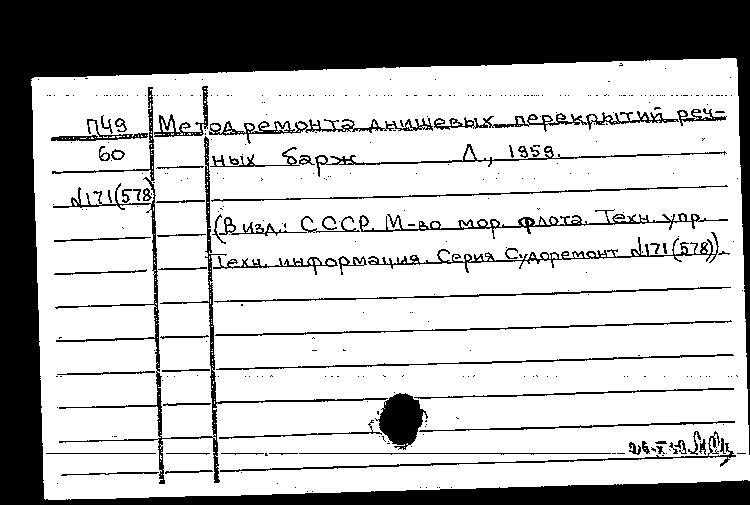 П49 Метод ремонта днищевых перекрытий реч-
60 ных барж Л., 1959.
№171(578)
(В изд.: СССР. М-во мор. флота. Техн. упр.
Техн. информация. Серия Судоремонт №171(578)).